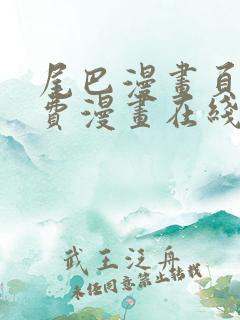 尾巴漫畫頁
費漫畫在綫
武王泛舟
未經同意禁止轉載